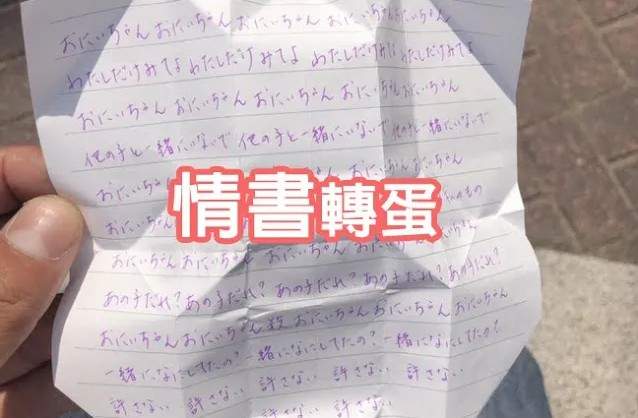 おにいちゃん おにいちゃん おにいちゃん おにいちゃん おにいちゃん
わたしだけみてよ わたしだけみてよ わたしだけみてよ わたしだけみてよ
おにいちゃん おにいちゃん おにいちゃん おにいちゃん おにいちゃん
他の子と一緒にいないで 他の子と一緒にいないで 他の子と一緒にいないで
おにいちゃん
情書轉蛋
おにいちゃん おにいちゃん おにいちゃん おにいちゃん
あの子だれ？ あの子だれ？ あの子だれ？ あの子だれ？ あの子だれ？
おにいちゃん おにいちゃん 殺 おにいちゃん おにいちゃん おにいちゃん
一緒になにしてたの？ 一緒になにしてたの？ 一緒になにしてたの？
許さない 許さない 許さない 許さない 許さない
許さない 許さない 許さない 許さない